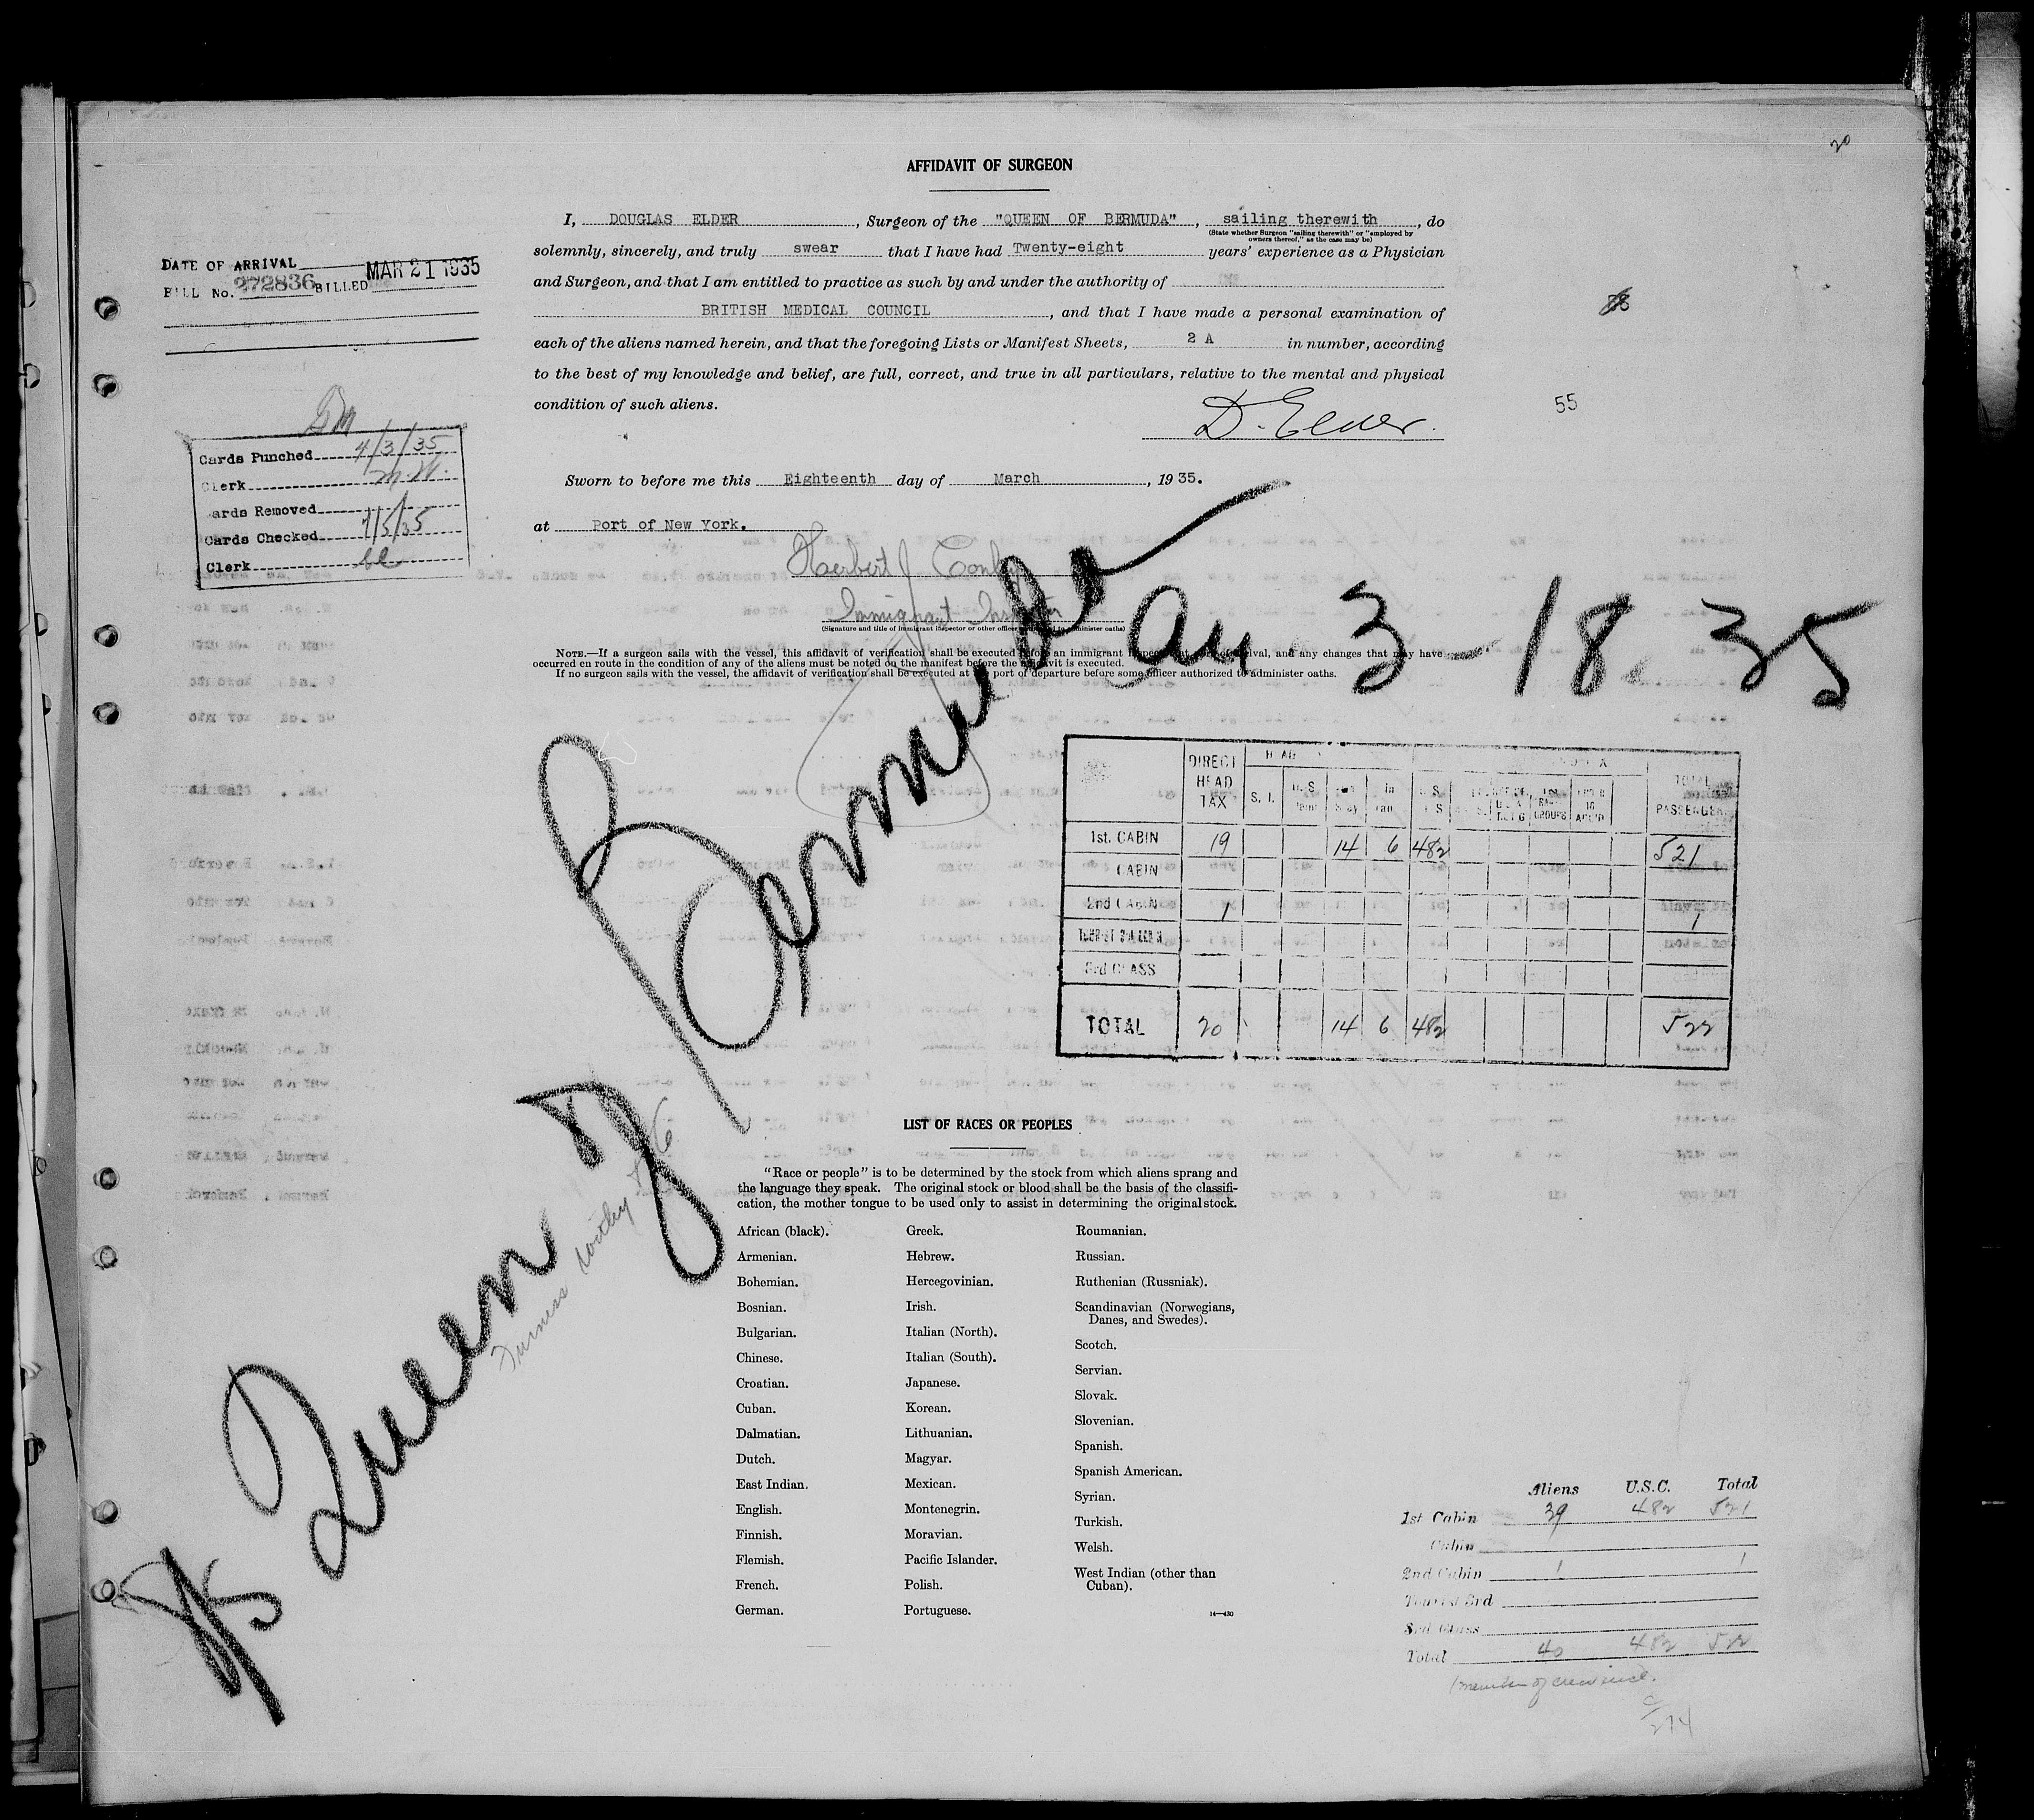 20
AFFIDAVIT OF SURGEON
I, DOUGLAS ELDER, Surgeon of the "QUEEN OF BERMUDA", sailing therewith, do
(State whether Surgeon "sailing therewith" or "employed by
owners thereof," as the case may be)
solemnly, sincerely, and truly swear that I have had Twenty-eight years' experience as a Physician
and Surgeon, and that I am entitled to practice as such by and under the authority of
BRITISH MEDICAL COUNCIL, and that I have made a personal examination of
each of the aliens named herein, and that the foregoing Lists or Manifest Sheets, 2 A in number, according
to the best of my knowledge and belief, are full, correct, and true in all particulars, relative to the mental and physical
condition of such aliens.
D. Elder.
55
DATE OF ARRIVAL
BILL No. 272836 BILLED MAR 21 1935
Cards Punched 4/3/35
Clerk
ards Removed
Cards Checked
Clerk
Sworn to before me this Eighteenth day of March, 1935.
at Port of New York.
Herbert J
Immigrant Inspector
(Signature and title of immigrant inspector or other officer to administer oaths)
NOTE.—If a surgeon sails with the vessel, this affidavit of verification shall be executed before an immigrant and any changes that may have
occurred en route in the condition of any of the aliens must be noted on the manifest before the affidavit is executed.
If no surgeon sails with the vessel, the affidavit of verification shall be executed at port of departure before some officer authorized to administer oaths.
S/S Queen of Bermuda
3-18-35
Furness Withy
DIRECT HEAD TAX S. I. TOTAL PASSENGERS
1st. CABIN 19 14 6 482 521
CABIN
2nd CABIN 1 1
3rd CLASS
TOTAL 20 14 6 482 522
LIST OF RACES OR PEOPLES
"Race or people" is to be determined by the stock from which aliens sprang and
the language they speak. The original stock or blood shall be the basis of the classifi-
cation, the mother tongue to be used only to assist in determining the original stock.
African (black).
Armenian.
Bohemian.
Bosnian.
Bulgarian.
Chinese.
Croatian.
Cuban.
Dalmatian.
Dutch.
East Indian.
English.
Finnish.
Flemish.
French.
German.
Greek.
Hebrew.
Hercegovinian.
Irish.
Italian (North).
Italian (South).
Japanese.
Korean.
Lithuanian.
Magyar.
Mexican.
Montenegrin.
Moravian.
Pacific Islander.
Polish.
Portuguese.
Roumanian.
Russian.
Ruthenian (Russniak).
Scandinavian (Norwegians,
Danes, and Swedes).
Scotch.
Servian.
Slovak.
Slovenian.
Spanish.
Spanish American.
Syrian.
Turkish.
Welsh.
West Indian (other than
Cuban).
14—430
Aliens U.S.C. Total
1st Cabin 39 482 521
Cabin
2nd Cabin 1 1
Tourist 3rd
3rd Class
Total 40 482 522
1 member of crew incl.